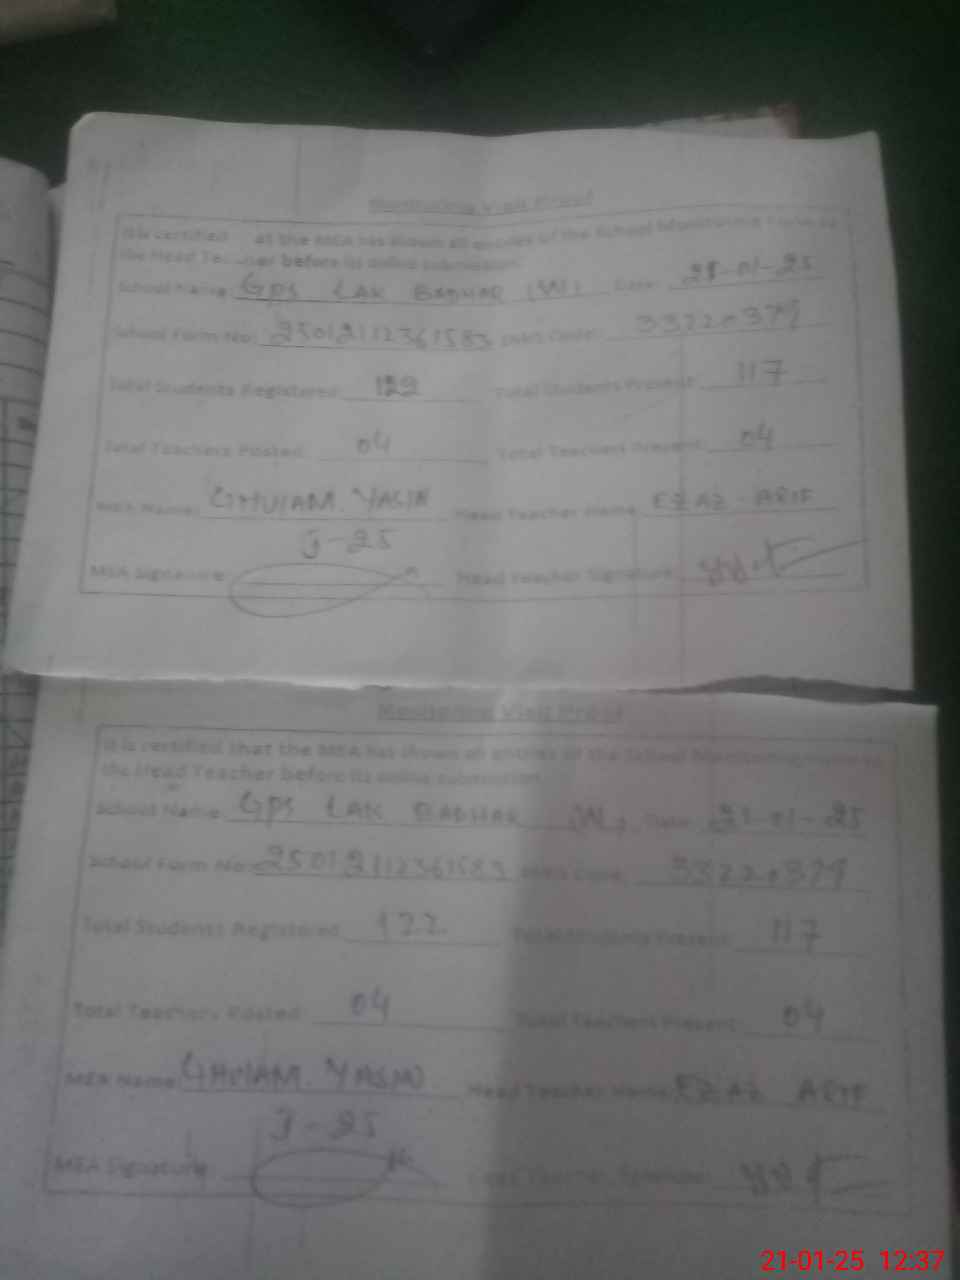 Monitoring Visit Proof
It is certified at the MEA has shown all entries of the School Monitoring Form to
the Head Te..her before its online submission.
School Name: GPS LAK BADHAR (W) Date: 21-01-25
School Form No: 250121112361583 EMIS Code:
Total Students Registered: 122 Total Students Present: 117
Total Teachers Posted: 04 Total Teachers Present: 04
MEA Name: GHULAM YASIN Head Teacher Name: EZAZ ARIF
J-25
MEA Signature: Head Teacher Signature:
Monitoring Visit Proof
It is certified that the MEA has shown all entries of the School Monitoring Form to
the Head Teacher before its online submission.
School Name: GPS LAK BADHAR (W) Date: 21-01-25
School Form No: 250121112361583 EMIS Code:
Total Students Registered: 122 Total Students Present: 117
Total Teachers Posted: 04 Total Teachers Present: 04
MEA Name: GHULAM YASIN Head Teacher Name: EZAZ ARIF
J-25
MEA Signature: Head Teacher Signature:
21-01-25 12:37